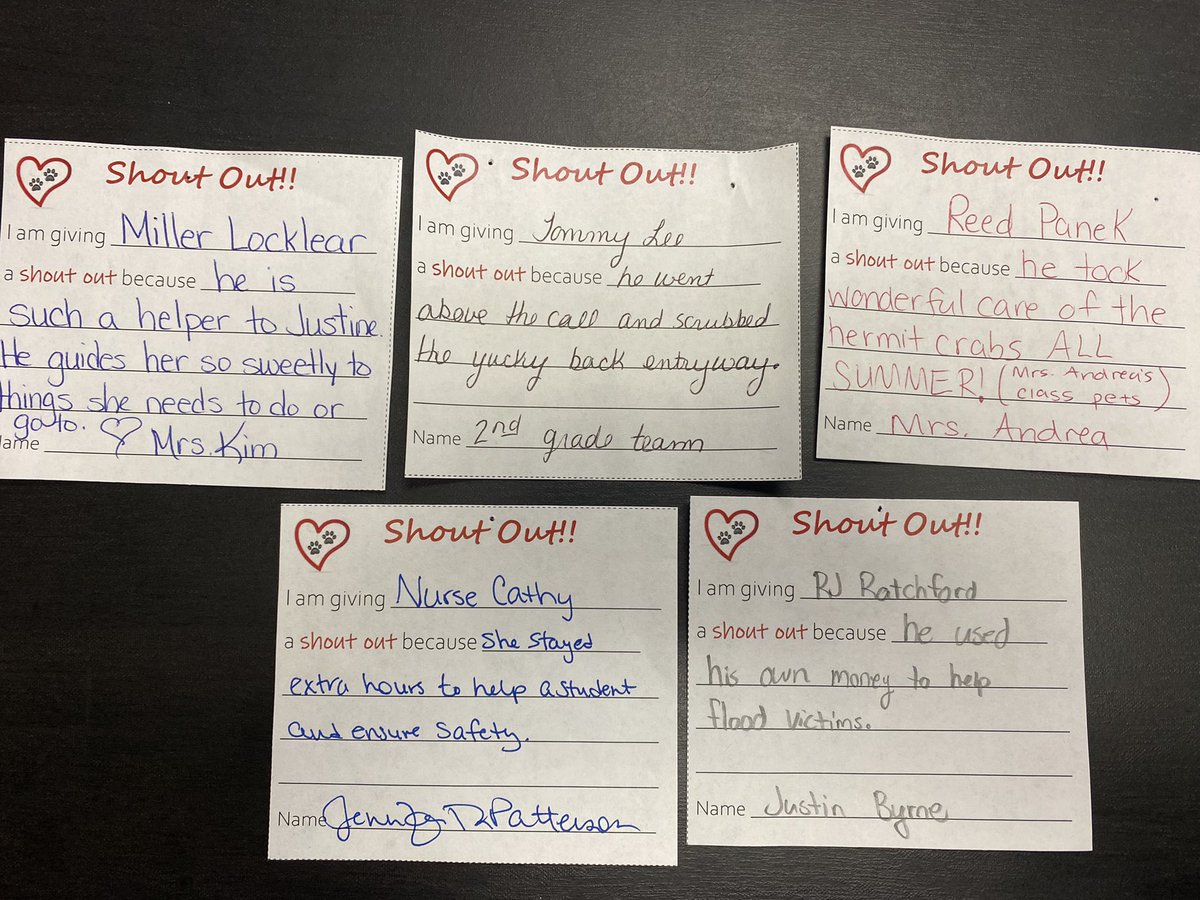 Shout Out!!
I am giving Miller Locklear
a shout out because he is
such a helper to Justine.
He guides her so sweetly to
things she needs to do or
go to. Mrs. Kim
Name
Shout Out!!
I am giving Tommy Lee
a shout out because he went
above the call and scrubbed
the yucky back entryway.
Name 2nd grade team
Shout Out!!
I am giving Reed Panek
a shout out because he took
wonderful care of the
hermit crabs ALL
SUMMER! (Mrs. Andrea's
class pets)
Name Mrs. Andrea
Shout Out!!
I am giving Nurse Cathy
a shout out because She Stayed
extra hours to help a student
and ensure safety.
Name Jennifer R Patterson
Shout Out!!
I am giving RJ Ratchford
a shout out because he used
his own money to help
flood victims.
Name Justin Byrne